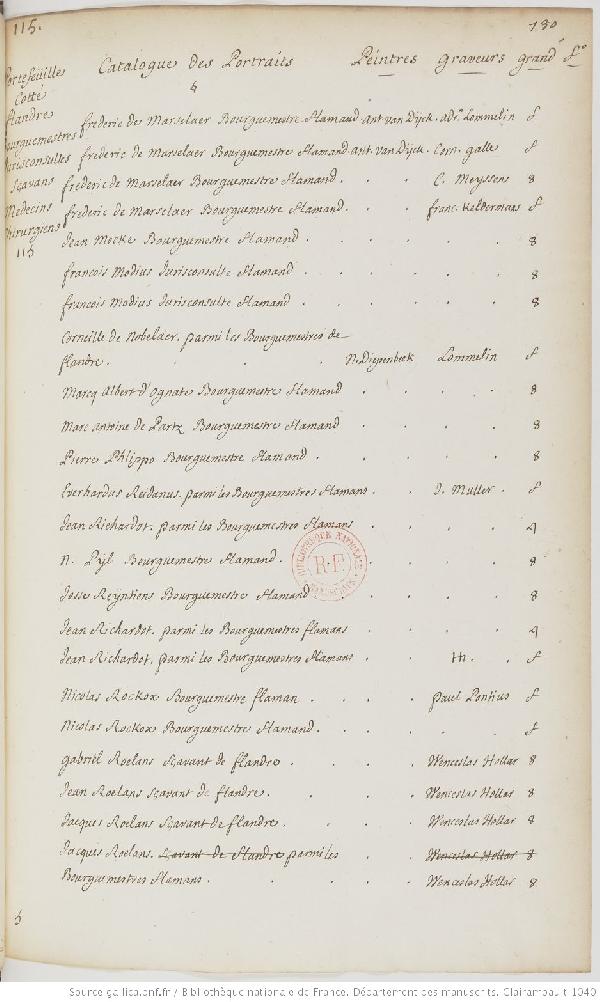 115.
130
Portefeuille
Cotté
flandre
Bourguemestres
Jurisconsultes
Sçavans
Medecins
Chirurgiens
115
Catalogue des Portraits Peintres graveurs grandr fo
frederic de Marselaer Bourguemestre flamand. Ant. van Dijck. adr. Lommelin f
frederic de Marselaer Bourguemestre flamand. Ant. van Dijck. Corn. galle f
frederic de Marselaer Bourguemestre flamand. C. Meyssens 8
frederic de Marselaer Bourguemestre flamand. franc. Keldermans f
Jean Mocke Bourguemestre flamand. 8
francois Modius Jurisconsulte flamand. 8
francois Modius Jurisconsulte flamand. 8
Corneille de Nobelaer. parmi les Bourguemestres de
flandre. N. Diepenbeck Lommelin f
Marcq Albert d'Ognate Bourguemestre flamand 8
Marc antoine de Partz Bourguemestre flamand 8
Pierre Phlippo Bourguemestre flamand. 8
Everhardus Reidanus. parmi les Bourguemestres flamans. J. Muller. f
Jean Richardot. parmi les Bourguemestres flamans 4
N. Pijl Bourguemestre flamand. 8
Josse Reynhens Bourguemestre flamand 8
Jean Richardot. parmi les Bourguemestres flamans 4
Jean Richardot. parmi les Bourguemestres flamans f
Nicolas Rockox Bourguemestre flaman. paul Pontius f
Nicolas Rockox Bourguemestre flamand. f
gabriel Roelans Sçavant de flandre. Wenceslas Hollar 8
Jean Roelans Sçavant de flandre. Wenceslas Hollar 8
Jacques Roelans Sçavant de flandre. Wenceslas Hollar 8
Jacques Roelans. Sçavant de flandre parmi les Wenceslas Hollar 8
Bourguemestres flamans. Wenceslas Hollar 8
BIBLIOTHEQUE NATIONALE
R.F.
MANUSCRITS
Source gallica.bnf.fr / Bibliothèque nationale de France. Département des manuscrits. Clairambault 1040